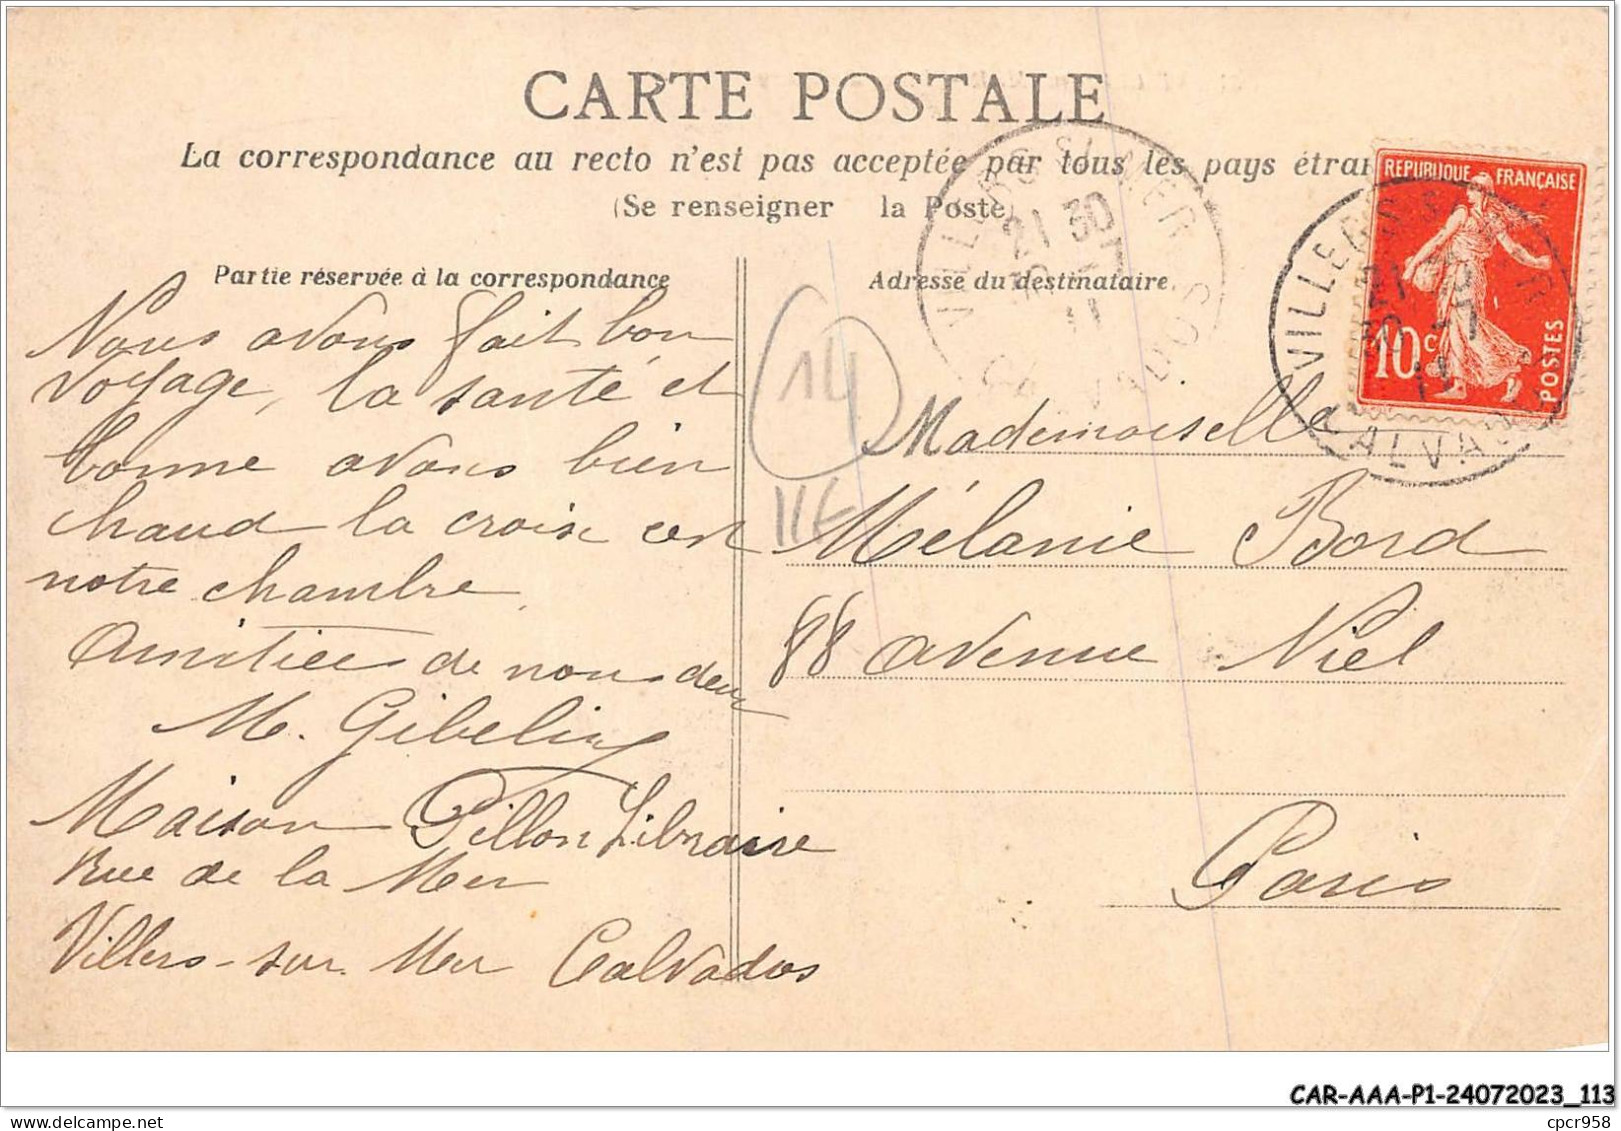 CARTE POSTALE
La correspondance au recto n'est pas acceptée par tous les pays étran
(Se renseigner la Poste)
Partie réservée à la correspondance
Nous avons fait bon
voyage, la santé est
bonne avons bien
chaud la croix est
notre chambre.
Amitiées de nous deux
M. Gibelin
Maison Pillon Libraire
Rue de la Mer
Villers-sur-Mer Calvados
Adresse du destinataire
Mademoiselle
Mélanie Bord
88 avenue Niel
Paris
14
11E
VILLERS S/ MER
21 30
-7
11
CALVADOS
REPUBLIQUE FRANÇAISE
10c
POSTES
VILLERS S/ MER
21 30
-7
11
CALVADOS
CAR-AAA-P1-24072023_113
cpcr958